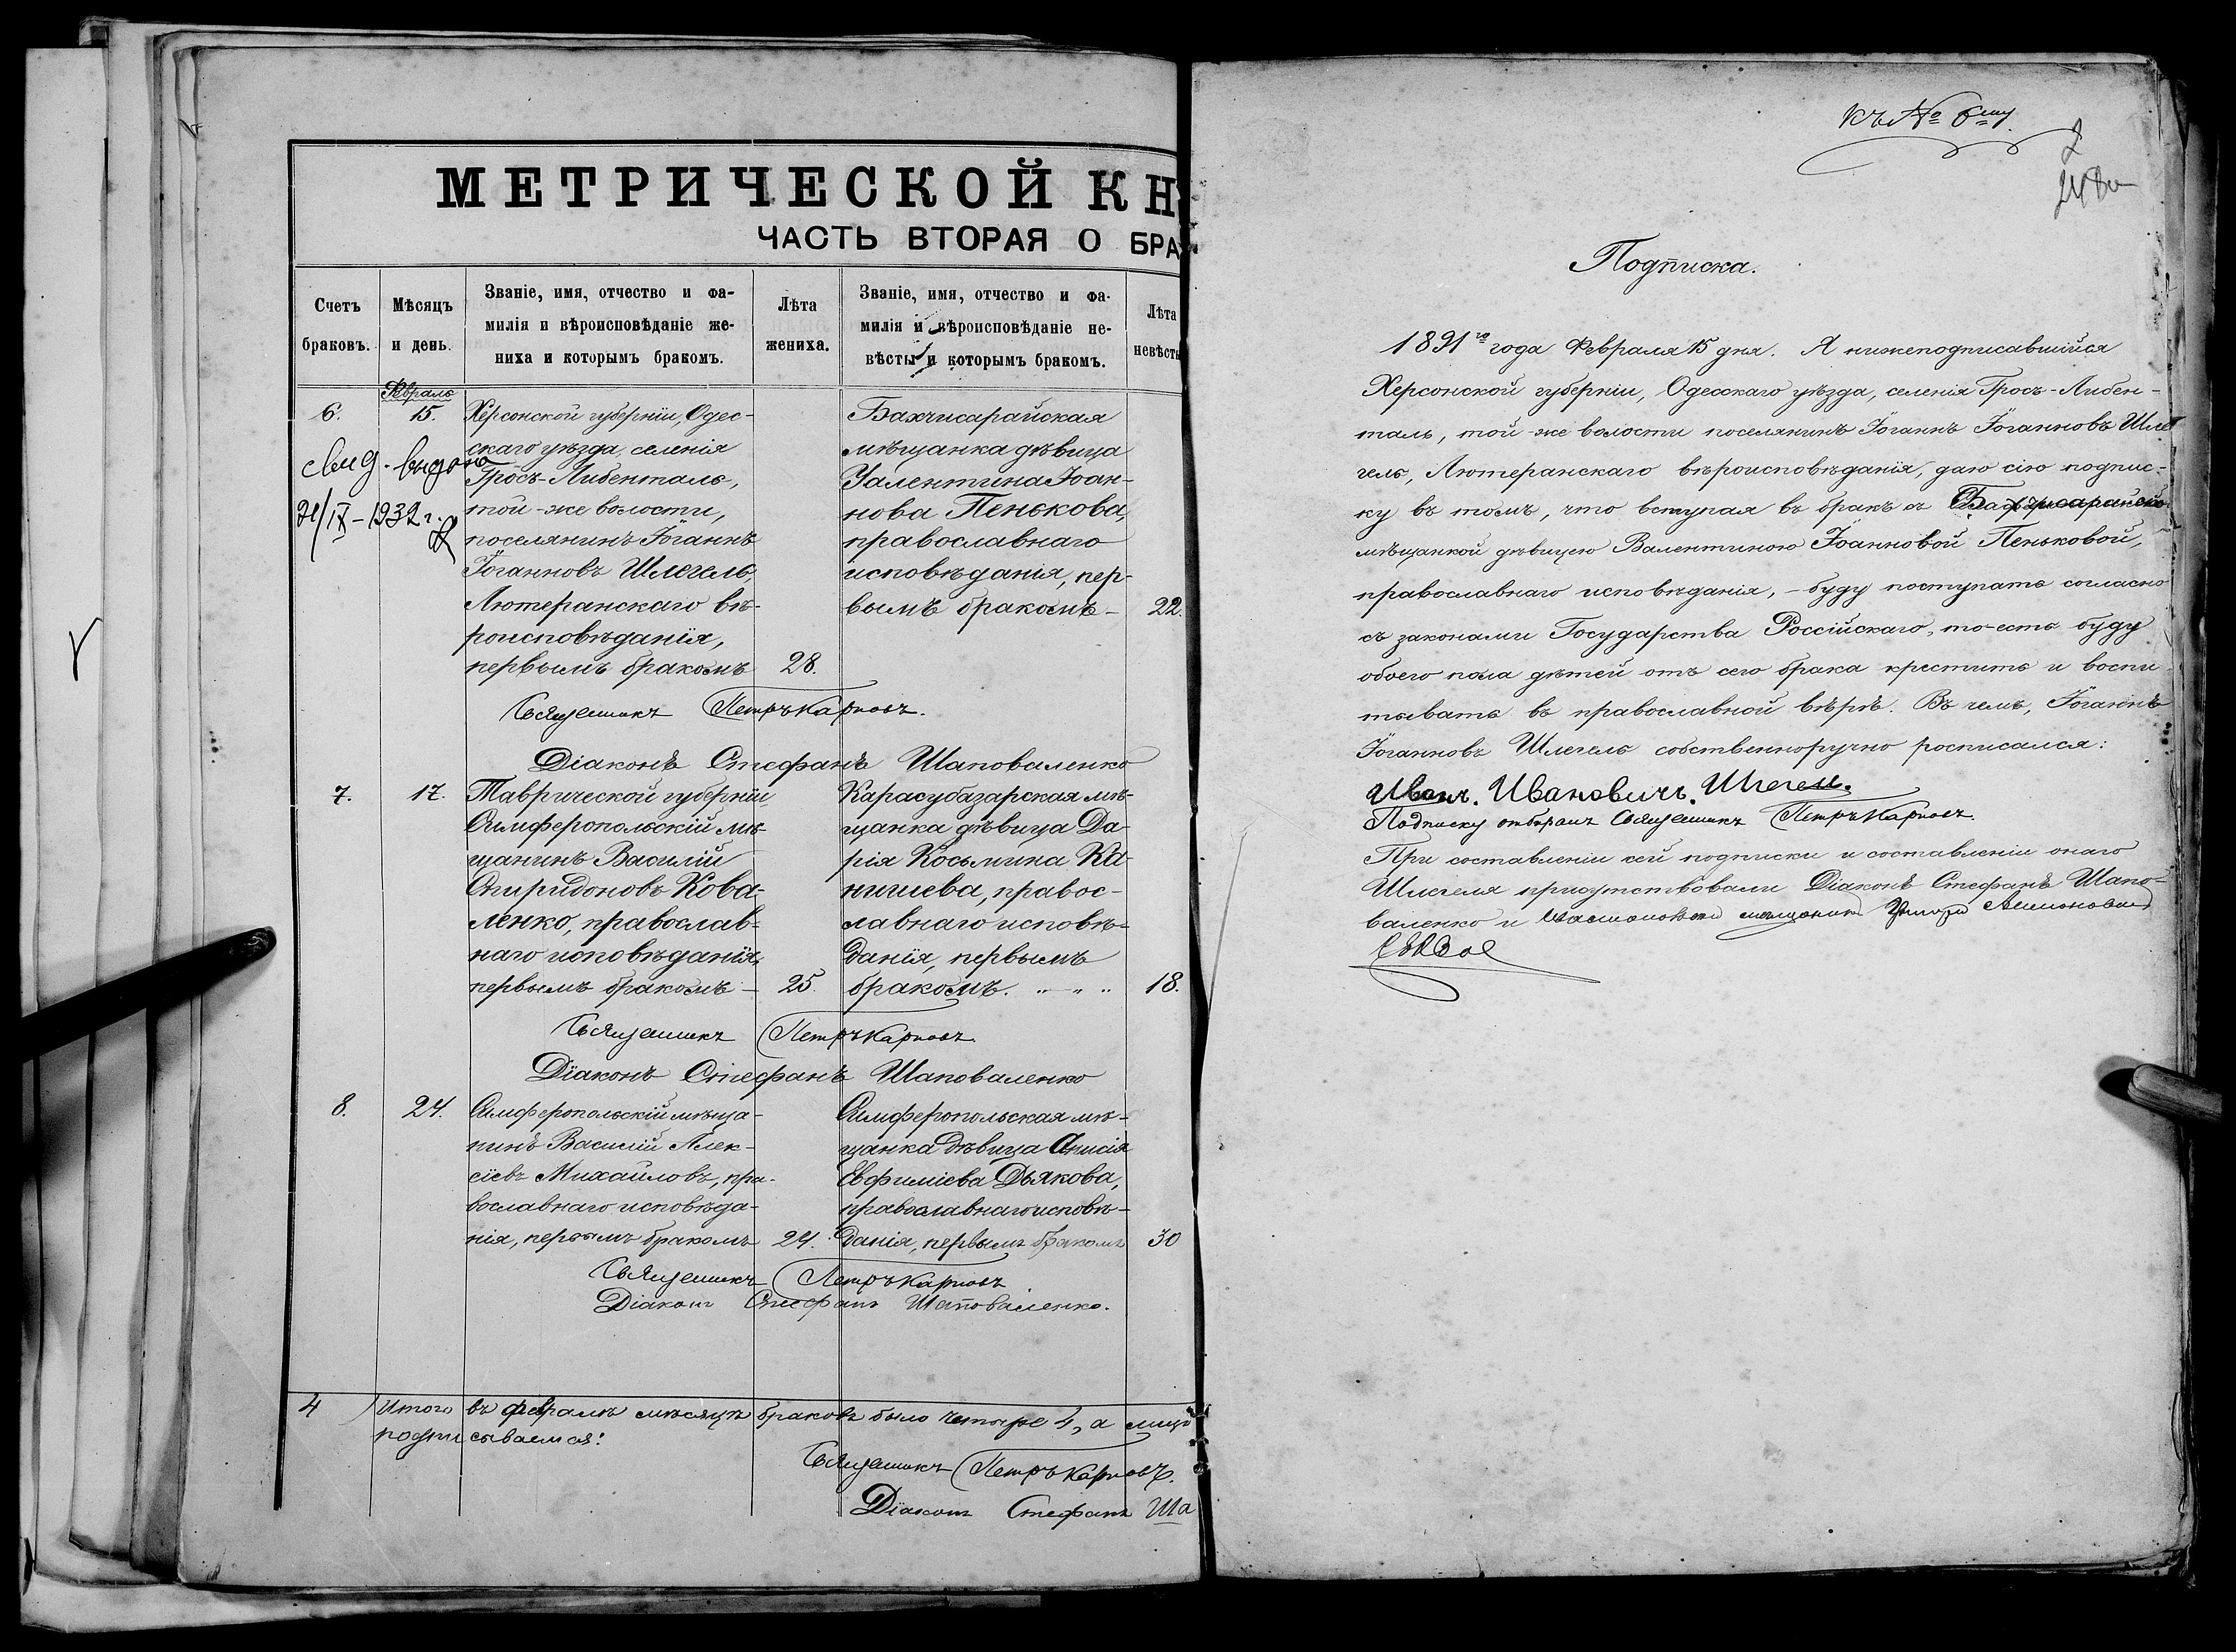 МЕТРИЧЕСКОЙ КН
ЧАСТЬ ВТОРАЯ О БРА
Счетъ браковъ.
Мѣсяцъ и день.
Званіе, имя, отчество и фа-
милія и вѣроисповѣданіе же-
ниха и которымъ бракомъ.
Лѣта жениха.
Званіе, имя, отчество и фа-
милія и вѣроисповѣданіе не-
вѣсты и которымъ бракомъ.
Лѣта невѣсты
6.
Февраль
15.
свид. выдано
IX-1932 г.
Херсонской губерніи, Одес-
скаго уѣзда, селенія
Гросъ-Либенталь,
той-же волости,
поселянинъ Іоганнъ
Іоганновъ Шлегель,
Лютеранскаго вѣ-
роисповѣданія,
первымъ бракомъ
28.
Бахчисарайская
мѣщанка дѣвица
Валентина Іоан-
нова Пенькова,
православнаго
исповѣданія, пер-
вымъ бракомъ-
22.
Священникъ Петръ Карповъ.
Діаконъ Стефанъ Шаповаленко
7.
17.
Таврической губерніи
Симферопольскій мѣ-
щанинъ Василій
Спиридоновъ Кова-
ленко, православ-
наго исповѣданія,
первымъ бракомъ-
25.
Карасубазарская мѣ-
щанка дѣвица Да-
рія Косьмина Ка-
нищева, правос-
лавнаго исповѣ-
данія, первымъ
бракомъ. „ - „ „
18.
Священникъ Петръ Карповъ.
Діаконъ Стефанъ Шаповаленко
8.
24.
Симферопольскій мѣща-
нинъ Василій Алек-
сіевъ Михайловъ, пра-
вославнаго исповѣда-
нія, первымъ бракомъ
24.
Симферопольская мѣ-
щанка дѣвица Анисія
Евфиміева Дьякова,
православнаго исповѣ-
данія, первымъ бракомъ
30
Священникъ Петръ Карповъ
Діаконъ Стефанъ Шаповаленко.
4
Итого въ февралѣ мѣсяцѣ браковъ было четыре 4, а
подписываемся:
Священникъ Петръ Карповъ.
Діаконъ Стефанъ Ша
къ № 6му.
Подписка.
1891го года Февраля 15 дня. Я нижеподписавшійся
Херсонской губерніи, Одесскаго уѣзда, селенія Гросъ-Либен-
таль, той-же волости поселянинъ Іоганнъ Іоганновъ Шле-
гель, Лютеранскаго вѣроисповѣданія, даю сію подпис-
ку въ томъ, что вступая въ бракъ съ Бахчисарайской
мѣщанкой дѣвицею Валентиною Іоанновой Пеньковой,
православнаго исповѣданія, - буду поступать согласно
съ законами Государства Россійскаго, то-есть буду
обоего пола дѣтей отъ сего брака крестить и воспи-
тывать въ православной вѣрѣ. Въ чемъ, Іоганнъ
Іоганновъ Шлегель собственноручно росписался:
Иванъ. Ивановичъ. Шлегель.
Подписку отбиралъ Священникъ Петръ Карповъ.
При составленіи сей подписки и составленіи онаго
Шлегеля присутствовали Діаконъ Стефанъ Шапо-
валенко и мѣщанинъ